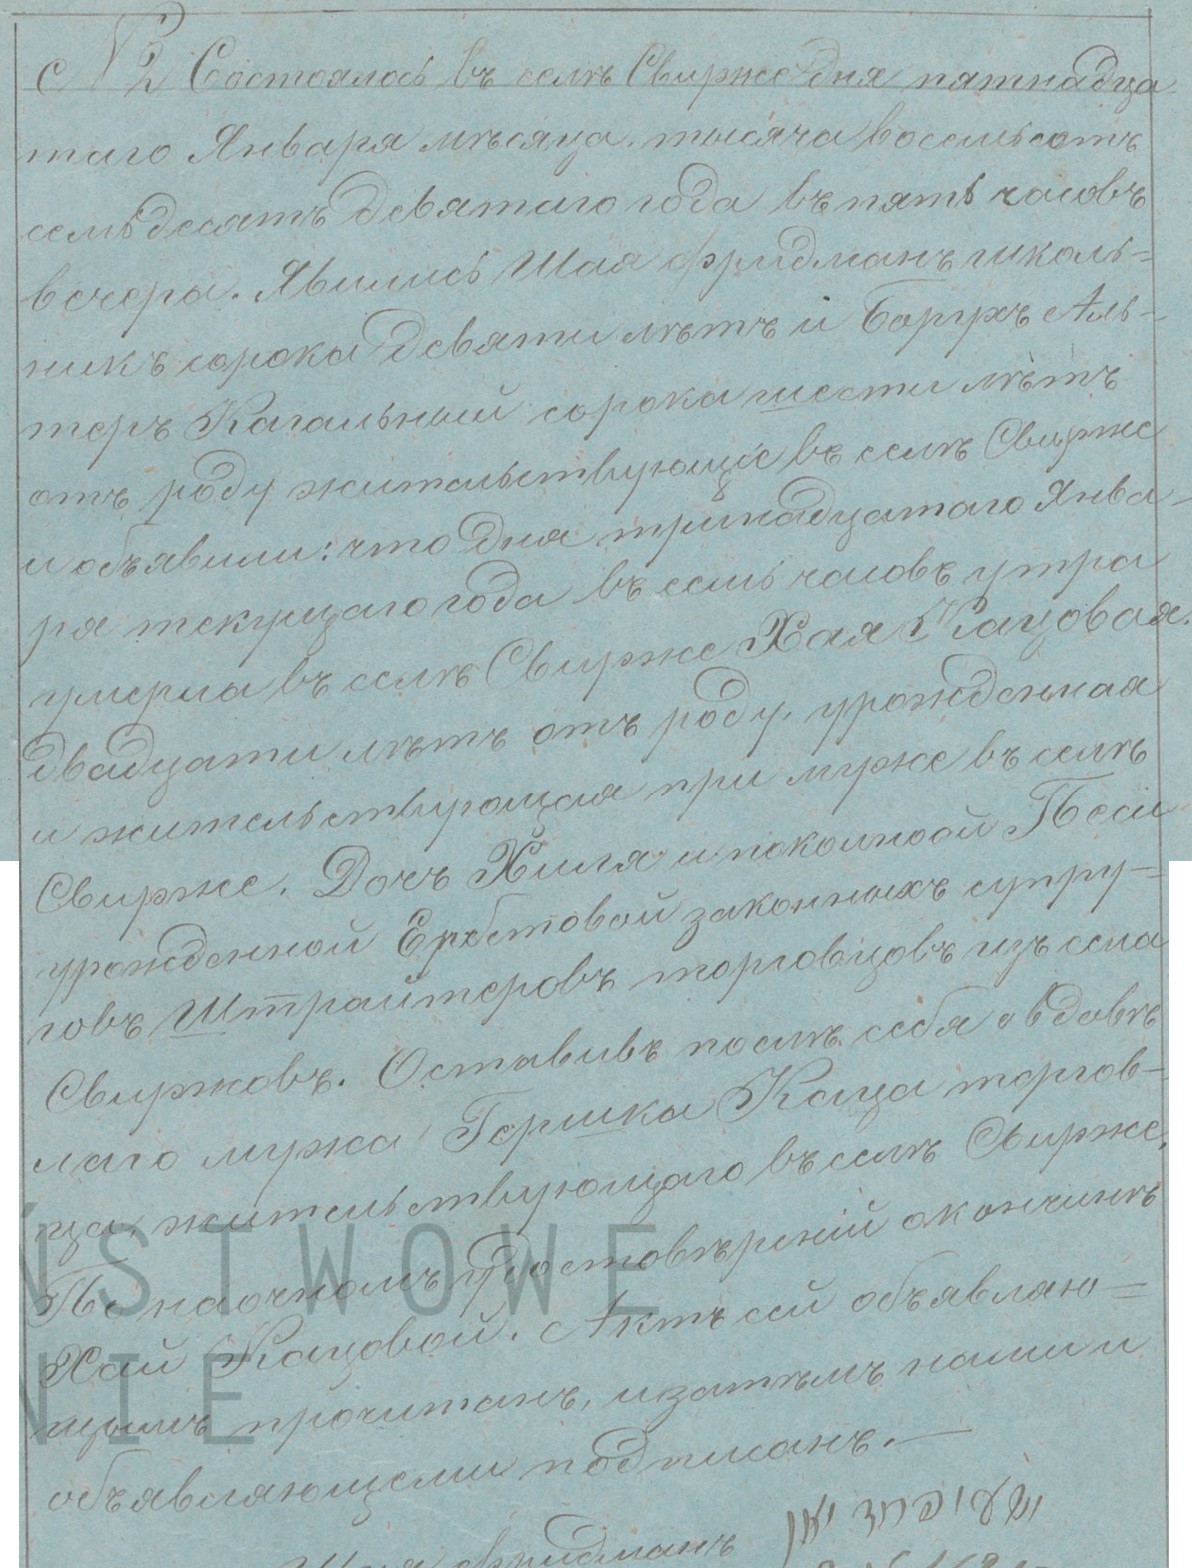 № 2 Состоялось въ селѣ Свирже дня пятнадца
таго Января мѣсяца тысяча восемьсотъ
семьдесятъ девятаго года въ пять часовъ
вечера. Явились Шая Фридманъ школь-
никъ сорока девяти лѣтъ и Борухъ Аль-
теръ Кагальный сорока шести лѣтъ
отъ роду жительствующіе въ селѣ Свирже
и объявили: что дня тринадцатаго Янва-
ря текущаго года въ семь часовъ утра
умерла въ селѣ Свирже Хая Кацовая
двадцати лѣтъ отъ роду, урожденная
и жительствующая при муже въ селѣ
Свирже. Дочь Хиля и покойной Песи
урожденной законныхъ супру-
говъ Штрайтеровъ торговцовъ изъ села
Свиржовъ. Оставивъ послѣ себя овдовѣ
лаго мужа Гершка Каца торгов-
ца жительствующаго въ селѣ Свирже.
По наочномъ удостовѣреніи о кончинѣ
Хаи Кацовой. Актъ сей объявляю-
щимъ прочитанъ, и затѣмъ нами и
объявляющими подписанъ.—
Шая Фридманъ
ŃSTWOWE
NIE